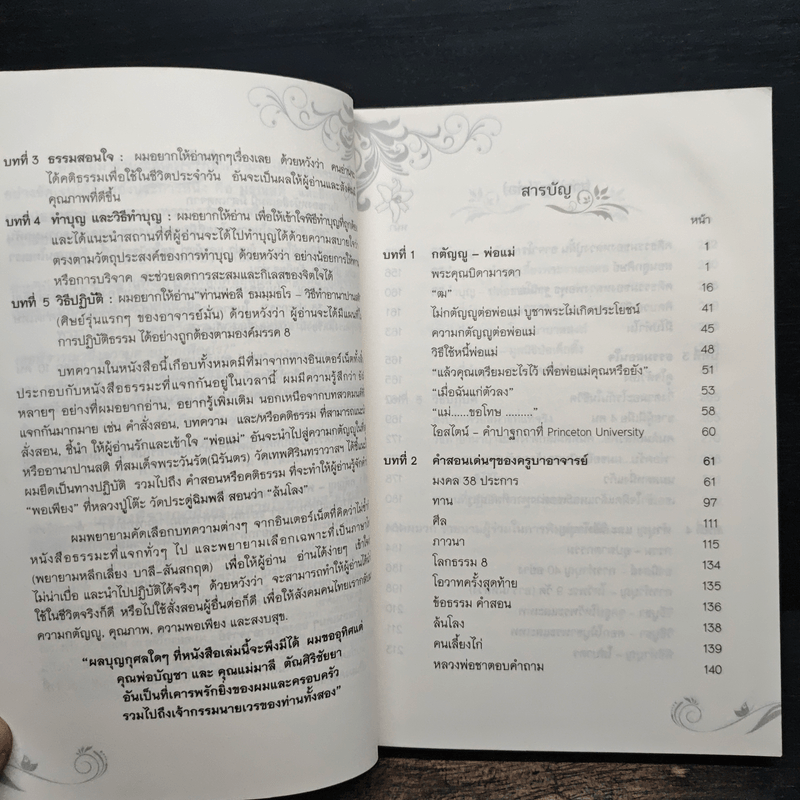 บทที่ 3 ธรรมสอนใจ : ผมอยากให้อ่านทุกๆเรื่องเลย ด้วยหวังว่า คนอ่านจะ
ได้คติธรรมเพื่อใช้ในชีวิตประจำวัน อันจะเป็นผลให้ผู้อ่านและสังคม
คุณภาพที่ดีขึ้น
บทที่ 4 ทำบุญ และวิธีทำบุญ : ผมอยากให้อ่าน เพื่อให้เข้าใจพิธีทำบุญที่ถูกต้อง
และได้แนะนำสถานที่ที่ผู้อ่านจะได้ไปทำบุญได้ด้วยความสบายใจ
ตรงตามวัตถุประสงค์ของการทำบุญ ด้วยหวังว่า อย่างน้อยการให้ทาน
หรือการบริจาค จะช่วยลดการสะสมและกิเลสของจิตใจได้
บทที่ 5 วิธีปฏิบัติ : ผมอยากให้อ่าน"ท่านพ่อลี ธมฺมธโร – วิธีทำอานาปานสติ
(ศิษย์รุ่นแรกๆ ของอาจารย์มั่น) ด้วยหวังว่า ผู้อ่านจะได้มีแผนที่
การปฏิบัติธรรม ได้อย่างถูกต้องตามองค์มรรค 8
บทความในหนังสือนี้เกือบทั้งหมดมีที่มาจากทางอินเตอร์เน็ตทั้งสิ้น
ประกอบกับหนังสือธรรมะที่แจกกันอยู่ในเวลานี้ ผมมีความรู้สึกว่า ยังมี
หลายๆ อย่างที่ผมอยากอ่าน, อยากรู้เพิ่มเติม นอกเหนือจากบทสวดมนต์ที่
แจกกันมากมาย เช่น คำสั่งสอน, บทความ และ/หรือคติธรรม ที่สามารถแนะ
สั่งสอน, ชี้นำ ให้ผู้อ่านรักและเข้าใจ "พ่อแม่" อันจะนำไปสู่ความกตัญญูในที่สุด
หรืออานาปานสติ ที่สมเด็จพระวันรัต(นิรันตร) วัดเทพศิรินทราวาสฯ ได้ชี้แนะ
ผมยึดเป็นทางปฏิบัติ รวมไปถึง คำสอนหรือคติธรรม ที่จะทำให้ผู้อ่านรู้จักคำว่า
"พอเพียง" ที่หลวงปู่โต๊ะ วัดประดู่ฉิมพลี สอนว่า "ล้นโลง"
ผมพยายามคัดเลือกบทความต่างๆ จากอินเตอร์เน็ตที่คิดว่าไม่ซ้ำ
หนังสือธรรมะที่แจกทั่วๆ ไป และพยายามเลือกเฉพาะที่เป็นภาษาไทย
(พยายามหลีกเลี่ยง บาลี-สันสกฤต) เพื่อให้ผู้อ่าน อ่านได้ง่ายๆ เข้าใจ
ไม่น่าเบื่อ และนำไปปฏิบัติได้จริงๆ ด้วยหวังว่า จะสามารถทำให้ผู้อ่านได้นำ
ใช้ในชีวิตจริงก็ดี หรือไปใช้สั่งสอนผู้อื่นต่อก็ดี เพื่อให้สังคมคนไทยเรากลับ
ความกตัญญู, คุณภาพ, ความพอเพียง และสงบสุข.
"ผลบุญกุศลใดๆ ที่หนังสือเล่มนี้จะพึงมีได้ ผมขออุทิศแด่
คุณพ่อบัญชา และ คุณแม่มาลี ตัณศิริชัยยา
อันเป็นที่เคารพรักยิ่งของผมและครอบครัว
รวมไปถึงเจ้ากรรมนายเวรของท่านทั้งสอง"
สารบัญ
หน้า
บทที่ 1 กตัญญู – พ่อแม่ 1
พระคุณบิดามารดา 1
"ฒ" 16
ไม่กตัญญูต่อพ่อแม่ บูชาพระไม่เกิดประโยชน์ 41
ความกตัญญูต่อพ่อแม่ 45
วิธีใช้หนี้พ่อแม่ 48
"แล้วคุณเตรียมอะไรไว้ เพื่อพ่อแม่คุณหรือยัง" 51
"เมื่อฉันแก่ตัวลง" 53
"แม่.....ขอโทษ ........." 58
ไอสไตน์ – คำปาฐกถาที่ Princeton University 60
บทที่ 2 คำสอนเด่นๆของครูบาอาจารย์ 61
มงคล 38 ประการ 61
ทาน 97
ศีล 111
ภาวนา 115
โลกธรรม 8 134
โอวาทครั้งสุดท้าย 135
ข้อธรรม คำสอน 136
ล้นโลง 138
คนเลี้ยงไก่ 139
หลวงพ่อชาตอบคำถาม 140